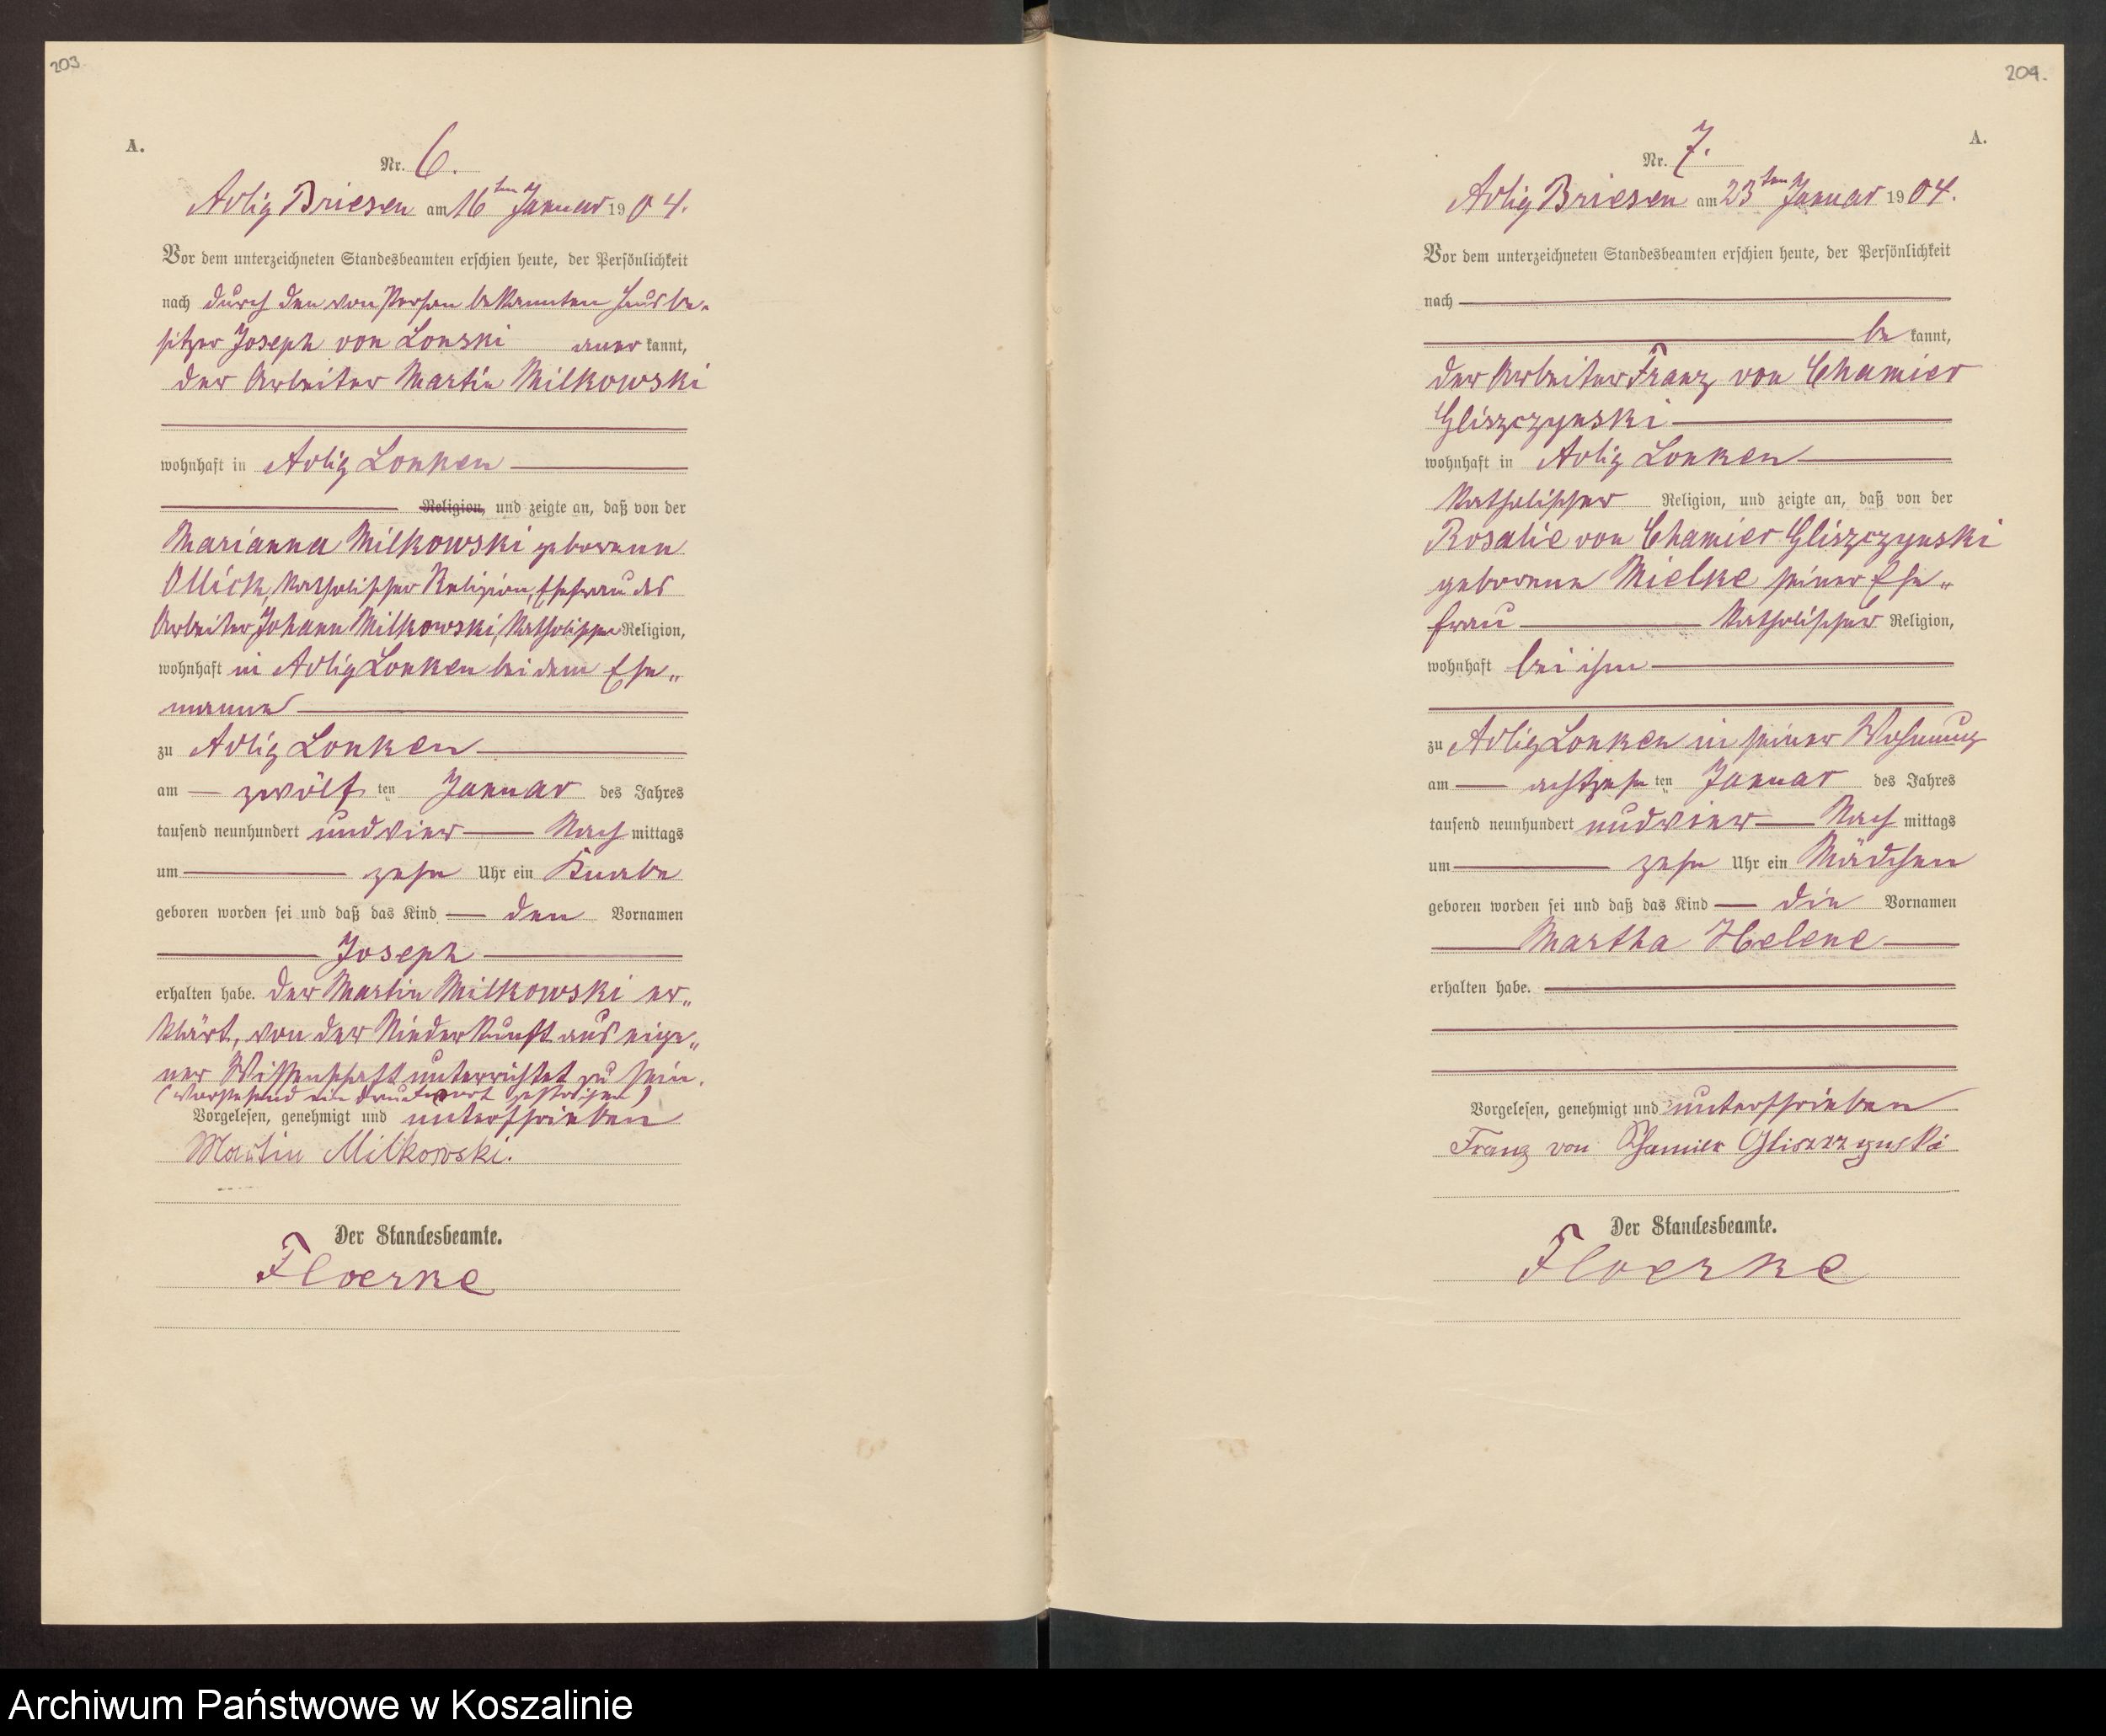 203
A.
Nr. 6.
Adlig Briesen am 16ten Januar 1904.
Vor dem unterzeichneten Standesbeamten erschien heute, der Persönlichkeit
nach durch den von Person bekannten Hausbe-
sitzer Joseph von Lonski aner kannt,
der Arbeiter Martin Milkowski
wohnhaft in Adlig Lonken
Religion, und zeigte an, daß von der
Marianna Milkowski geborene
Ollick, katholischer Religion, Ehefrau des
Arbeiter Johann Milkowski, katholischer Religion,
wohnhaft in Adlig Lonken bei dem Ehe-
manne
zu Adlig Lonken
am zwölf ten Januar des Jahres
tausend neunhundert und vier Nach mittags
um zehn Uhr ein Knabe
geboren worden sei und daß das Kind den Vornamen
Joseph
erhalten habe. Der Martin Milkowski er-
klärt, von der Niederkunft aus eige-
ner Wissenschaft unterrichtet zu sein.
(Vorstehend ein Druckwort gestrichen)
Vorgelesen, genehmigt und unterschrieben
Martin Milkowski.
Der Standesbeamte.
Floerke
204.
A.
Nr. 7.
Adlig Briesen am 23ten Januar 1904.
Vor dem unterzeichneten Standesbeamten erschien heute, der Persönlichkeit
nach
be kannt,
der Arbeiter Franz von Chamier
Gliszczynski
wohnhaft in Adlig Lonken
katholischer Religion, und zeigte an, daß von der
Rosalie von Chamier Gliszczynski
geborene Mielke seiner Ehe-
frau katholischer Religion,
wohnhaft bei ihm
zu Adlig Lonken in seiner Wohnung
am achtzehn ten Januar des Jahres
tausend neunhundert und vier Nach mittags
um zehn Uhr ein Mädchen
geboren worden sei und daß das Kind die Vornamen
Martha Helene
erhalten habe.
Vorgelesen, genehmigt und unterschrieben
Franz von Chamier Gliszczynski
Der Standesbeamte.
Floerke
Archiwum Państwowe w Koszalinie